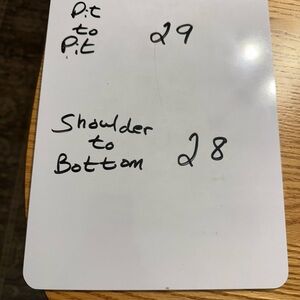 Pit
to
Pit 29
Shoulder
to
Bottom 28